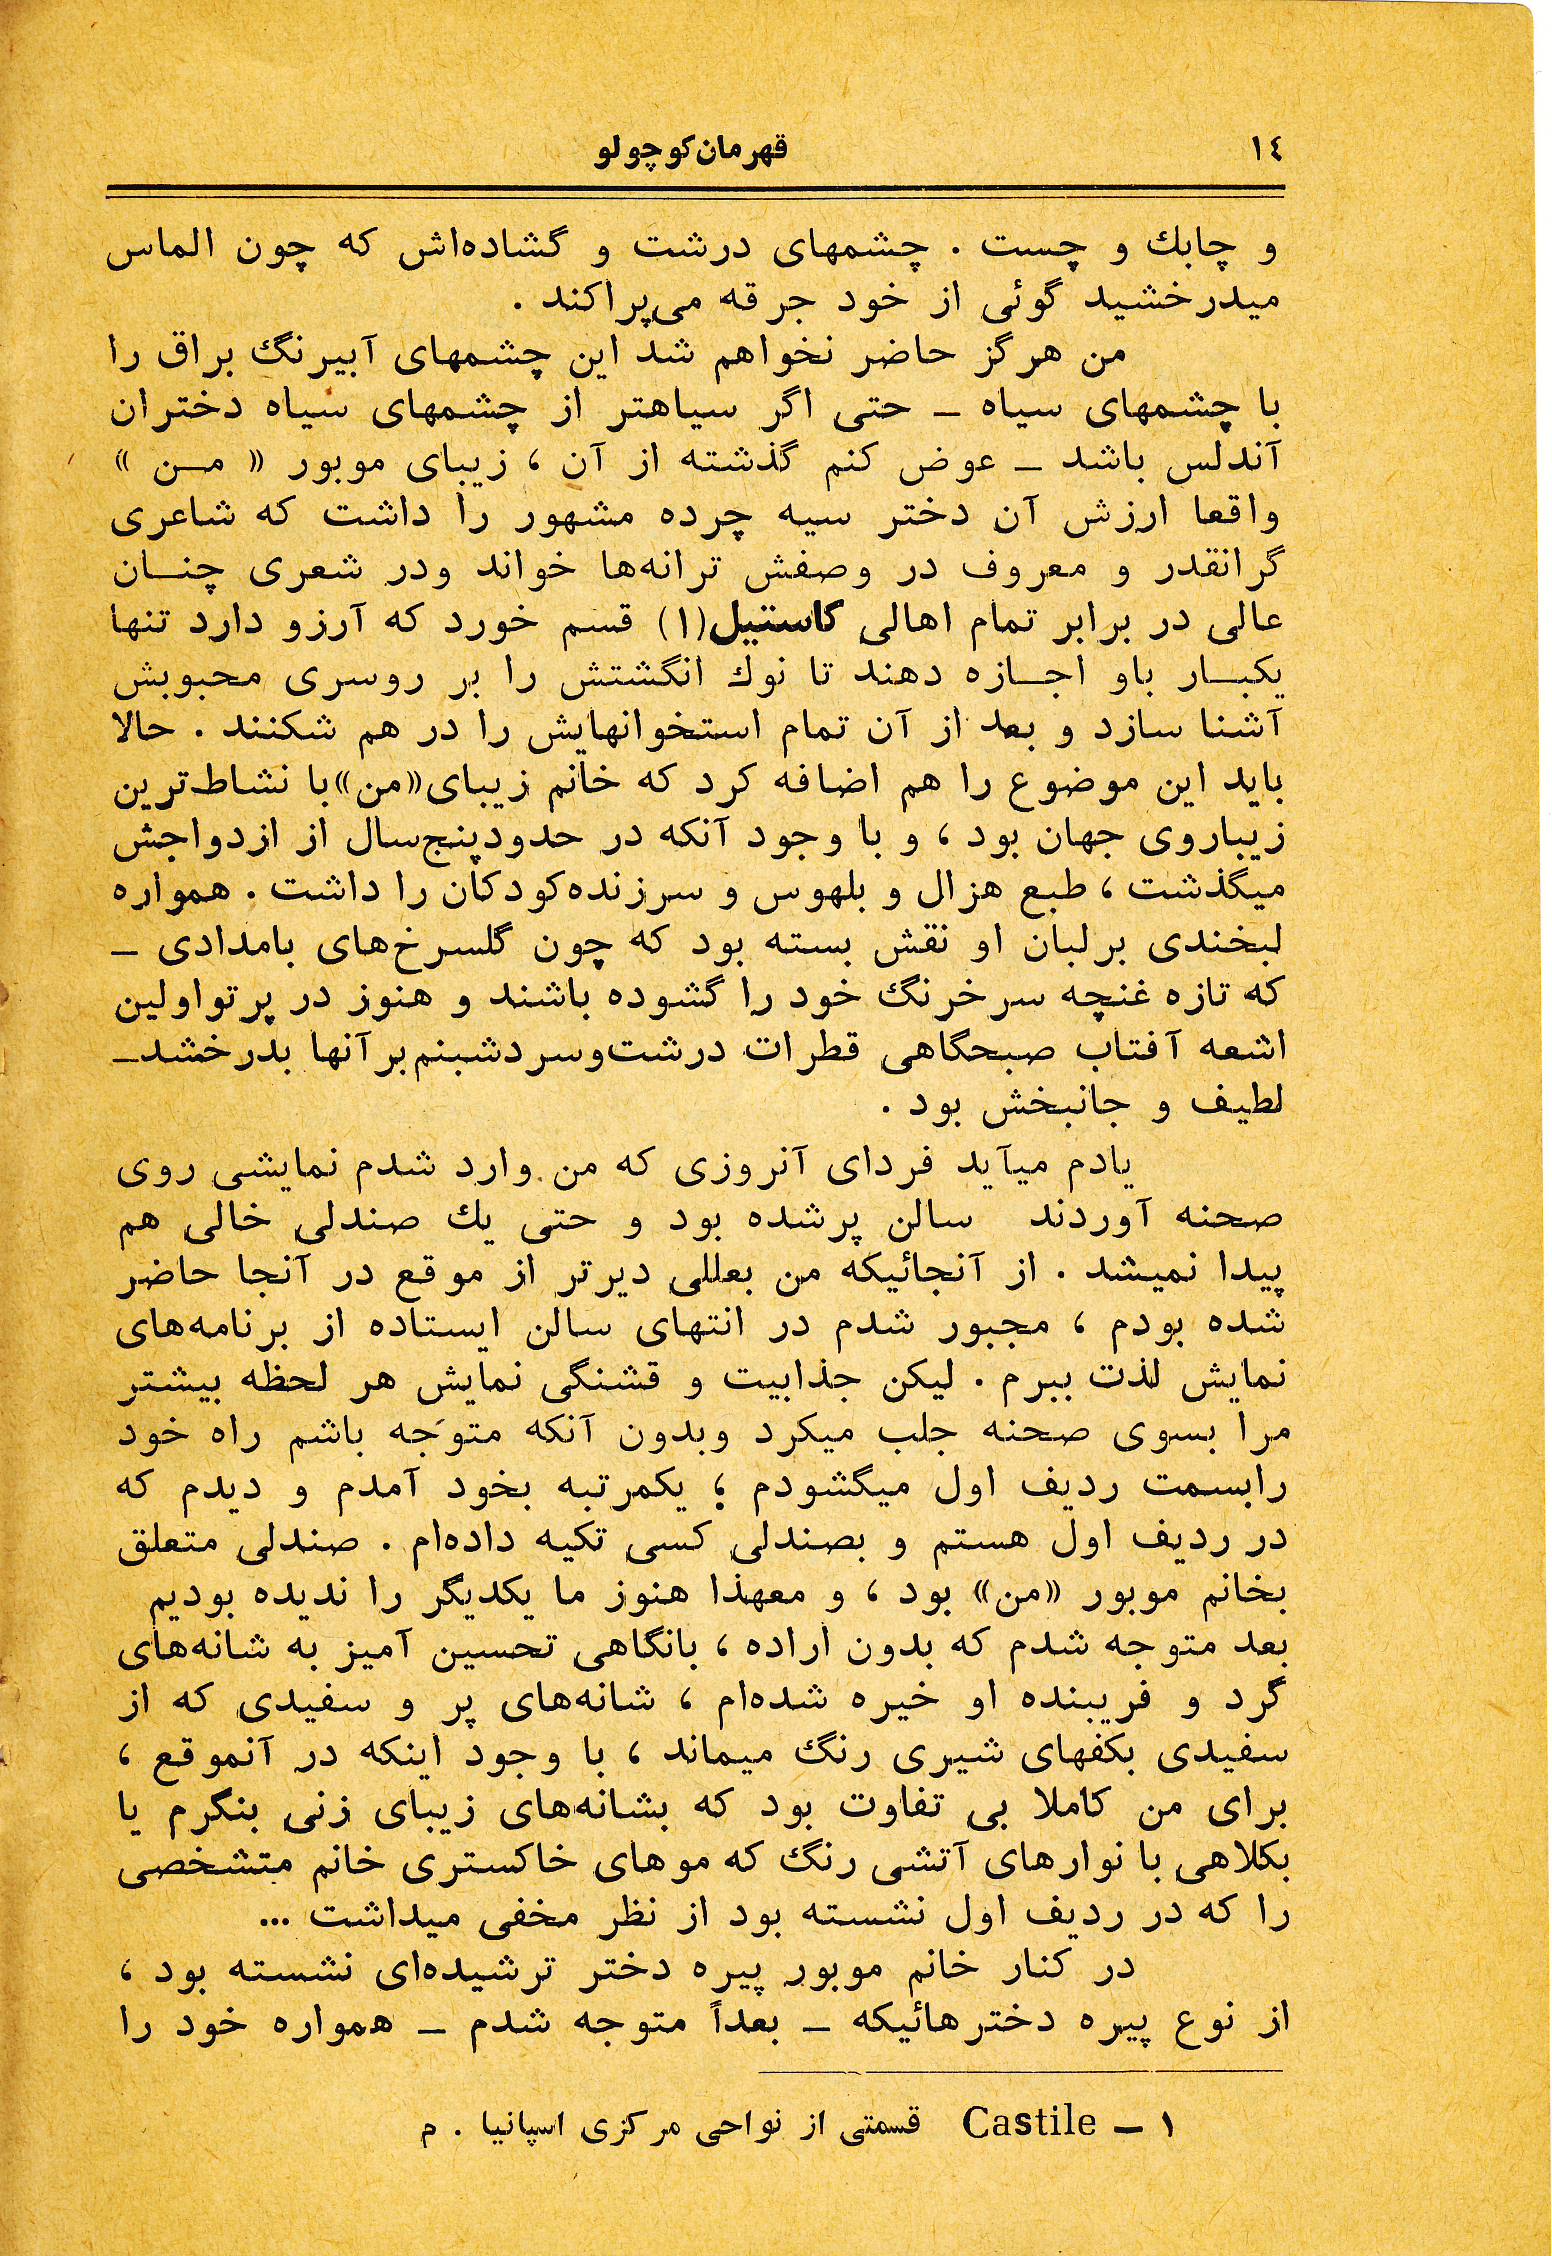 ١٤
قهرمان کوچولو
و چابك و چست . چشمهای درشت و گشاده‌اش که چون الماس
میدرخشید گوئی از خود جرقه می‌پراکند .
من هرگز حاضر نخواهم شد این چشمهای آبیرنگ براق را
با چشمهای سیاه ـ حتی اگر سیاهتر از چشمهای سیاه دختران
آندلس باشد ـ عوض کنم گذشته از آن ، زیبای موبور « مـن »
واقعا ارزش آن دختر سیه چرده مشهور را داشت که شاعری
گرانقدر و معروف در وصفش ترانه‌ها خواند ودر شعری چنـان
عالی در برابر تمام اهالی کاستیل(۱) قسم خورد که آرزو دارد تنها
یکبـار باو اجـازه دهند تا نوك انگشتش را بر روسری محبوبش
آشنا سازد و بعد از آن تمام استخوانهایش را در هم شکنند . حالا
باید این موضوع را هم اضافه کرد که خانم زیبای«من»با نشاط‌ترین
زیباروی جهان بود ، و با وجود آنکه در حدودپنج‌سال از ازدواجش
میگذشت ، طبع هزال و بلهوس و سرزنده‌کودکان را داشت . همواره
لبخندی برلبان او نقش بسته بود که چون گلسرخ‌های بامدادی ـ
که تازه غنچه سرخرنگ خود را گشوده باشند و هنوز در پرتواولین
اشعه آفتاب صبحگاهی قطرات درشت‌وسردشبنم‌برآنها بدرخشدـ
لطیف و جانبخش بود .
یادم میآید فردای آنروزی که من وارد شدم نمایشی روی
صحنه آوردند سالن پرشده بود و حتی یك صندلی خالی هم
پیدا نمیشد . از آنجائیکه من بعللی دیرتر از موقع در آنجا حاضر
شده بودم ، مجبور شدم در انتهای سالن ایستاده از برنامه‌های
نمایش لذت ببرم . لیکن جذابیت و قشنگی نمایش هر لحظه بیشتر
مرا بسوی صحنه جلب میکرد وبدون آنکه متوجه باشم راه خود
رابسمت ردیف اول میگشودم ؛ یکمرتبه بخود آمدم و دیدم که
در ردیف اول هستم و بصندلی کسی تکیه داده‌ام . صندلی متعلق
بخانم موبور «من» بود ، و معهذا هنوز ما یکدیگر را ندیده بودیم
بعد متوجه شدم که بدون اراده ، بانگاهی تحسین آمیز به شانه‌های
گرد و فریبنده او خیره شده‌ام ، شانه‌های پر و سفیدی که از
سفیدی بکفهای شیری رنگ میماند ، با وجود اینکه در آنموقع ،
برای من کاملا بی تفاوت بود که بشانه‌های زیبای زنی بنگرم یا
بکلاهی با نوارهای آتشی رنگ که موهای خاکستری خانم متشخصی
را که در ردیف اول نشسته بود از نظر مخفی میداشت ...
در کنار خانم موبور پیره دختر ترشیده‌ای نشسته بود ،
از نوع پیره دخترهائیکه ـ بعداً متوجه شدم ـ همواره خود را
۱ ـ Castile قسمتی از نواحی مرکزی اسپانیا . م